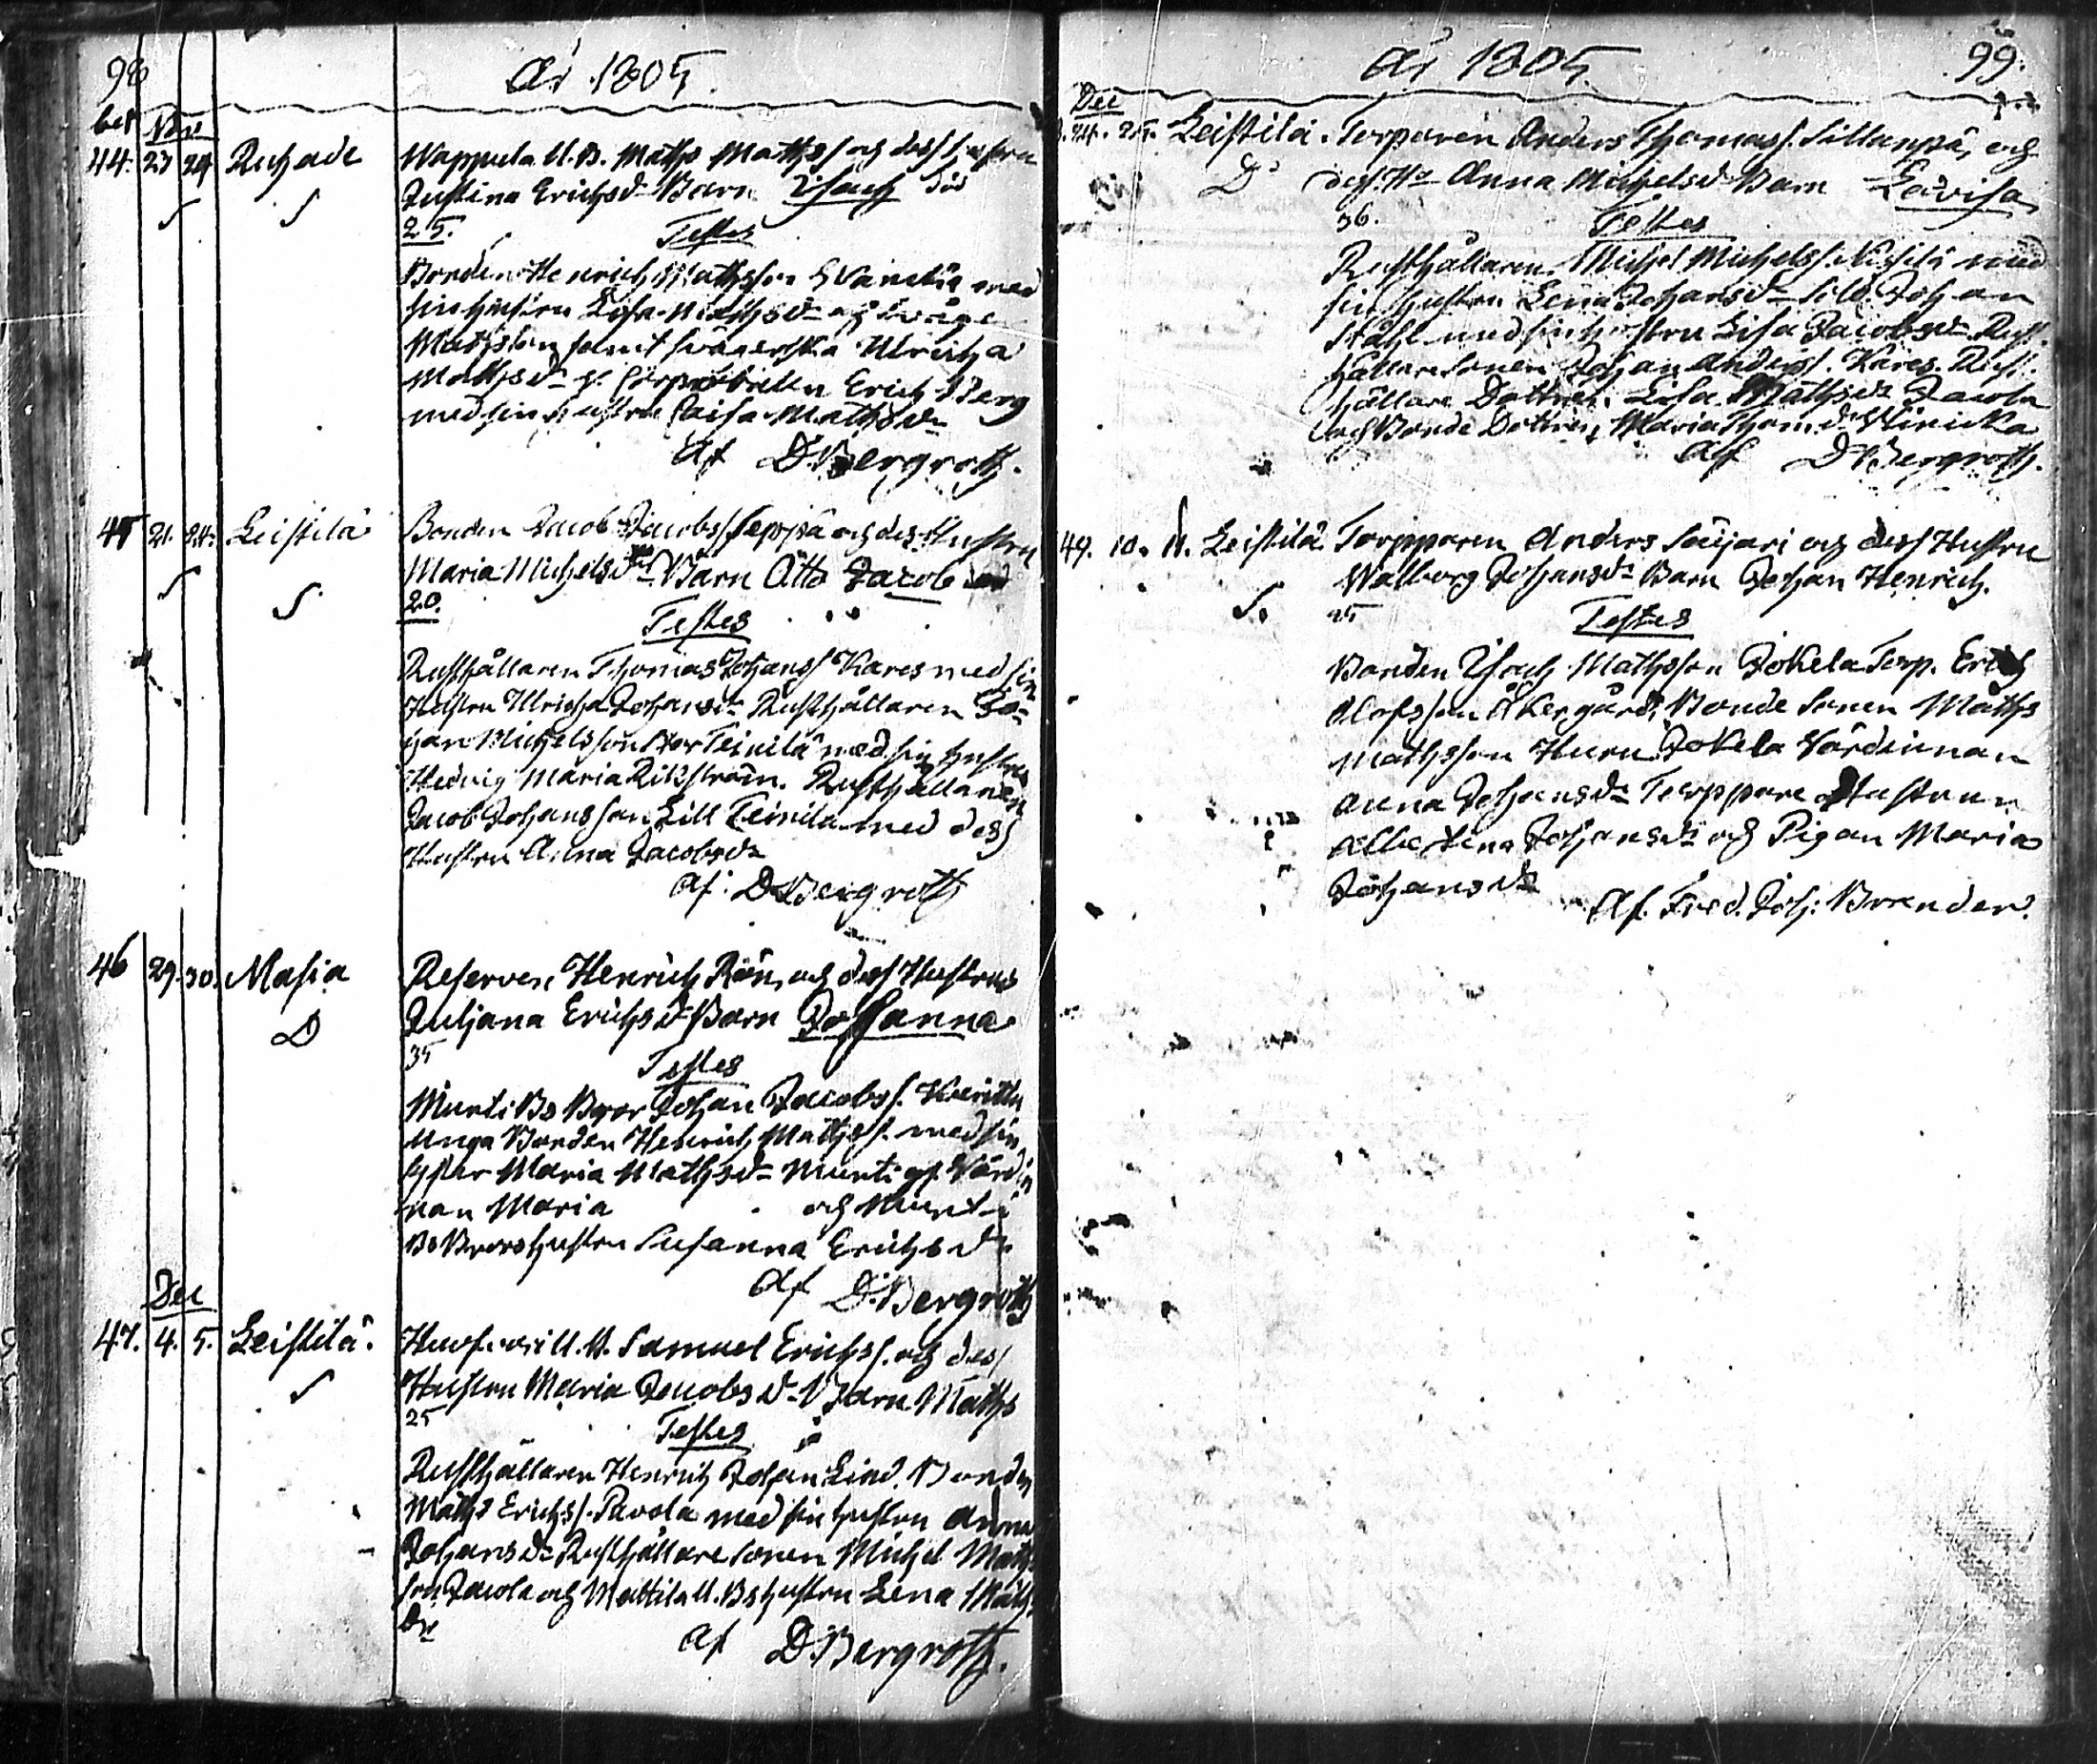 98
År 1805.
Nov
44. 23 24 Ruhade Wappula U.B. Maths Mathss och dess hustru
Justina Erichsdr Barn Isach död
25. Testes
Bonden Henrich Mathsson med
sin hustru Lisa
Mathsson samt svägerska Ulricha
Mathsdr Erich Berg
med sin hustru Caisa Mathsdr
Af D. Bergroth.
45 21. 24. Leistilä Bonden Jacob Jacobss Seppä och dess Hustru
Maria Michelsdr Barn Otto Jacob
20. Testes
Rusthållaren Thomas Johanss Kares med sin
Hustru Ulricha Johansdr Rusthållaren Jo-
han Michelsson Stor Teinilä med sin hustru
Hedwig Maria Rikström. Rusthållaren
Jacob Johansson Lill Teinila med dess
Hustru Anna Jacobsdr
Af: D. Bergroth
46 29. 30. Masia Reserven Henrich Rön och dess Hustru
D Juljana Erichsdr Barn Johanna
35 Testes
Murti Bs Bror Johan Jacobss.
Unga Bonden Henrich Mathss. med sin
syster Maria Mathsdr Murti Värdin
nan Maria och Murti
Bs Brors hustru Susanna Erichsdr
Af D. Bergroth
Dec
47. 4. 5. Leistilä. U.B. Samuel Erichss. och dess
Hustru Maria Jacobsdr Barn Maths
25 Testes
Rusthållaren Henrich Johan Lind. Bonden
Maths Erichss. Pavola med sin hustru Anna
Johansdr Rusthållare sonen Michel Maths
son Jacola och Mattila U.Bs hustru Lena Maths
dr
Af D. Bergroth.
År 1805.
99.
Dec
24. 25. Leistilä. Torparen Anders Thomass. Sillanpä, och
D dess Hu Anna Michelsdr Barn Lovisa
36. Testes
Rusthållaren Michel Michelss. med
sin hustru Lena Johansdr Sold. Johan
Ståhl med sin hustru Lisa Jacobsdr Rust-
hållare sonen Johan Anderss. Kares. Rust-
hållare Dottren. Lisa Mathsdr Jacola
och Bonde Dottren Maria Thomdr
Af D. Bergroth.
49. 10. 11. Leistilä Torpparen Anders Säijari och dess Hustru
Walborg Johansdr Barn Johan Henrich.
25 Testes
Bonden Isach Mathsson Jokela Torp. Erich
Olofsson Åkergård, Bonde Sonen Maths
Mathsson Huru Jokela Värdinnan
Anna Johansdr Torppare Hustrun
Albertina Johansdr och Pigan Maria
Johansdr
Af. Fred. Joh: Brander.